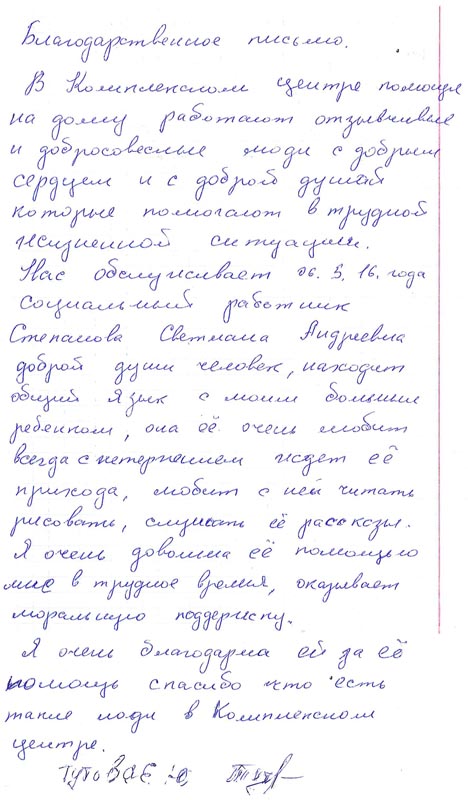 Благодарственное письмо.
В Комплексном центре помощи
на дому работают отзывчивые
и добросовесные люди с добрым
сердцем и с доброй душой
которые помогают в трудной
жизненной ситуации.
Нас обслуживает 06. 3. 16. года
социальный работник
Степанова Светлана Андреевна
доброй души человек, находит
общий язык с моим больным
ребенком, она её очень любит
всегда с нетерпением ждет её
прихода, любит с ней читать
рисовать, слушать её рассказы.
Я очень довольна её помощью
мне в трудное время, оказывает
моральную поддержку.
Я очень благодарна ей за её
помощь спасибо что есть
такие люди в Комплексном
центре.